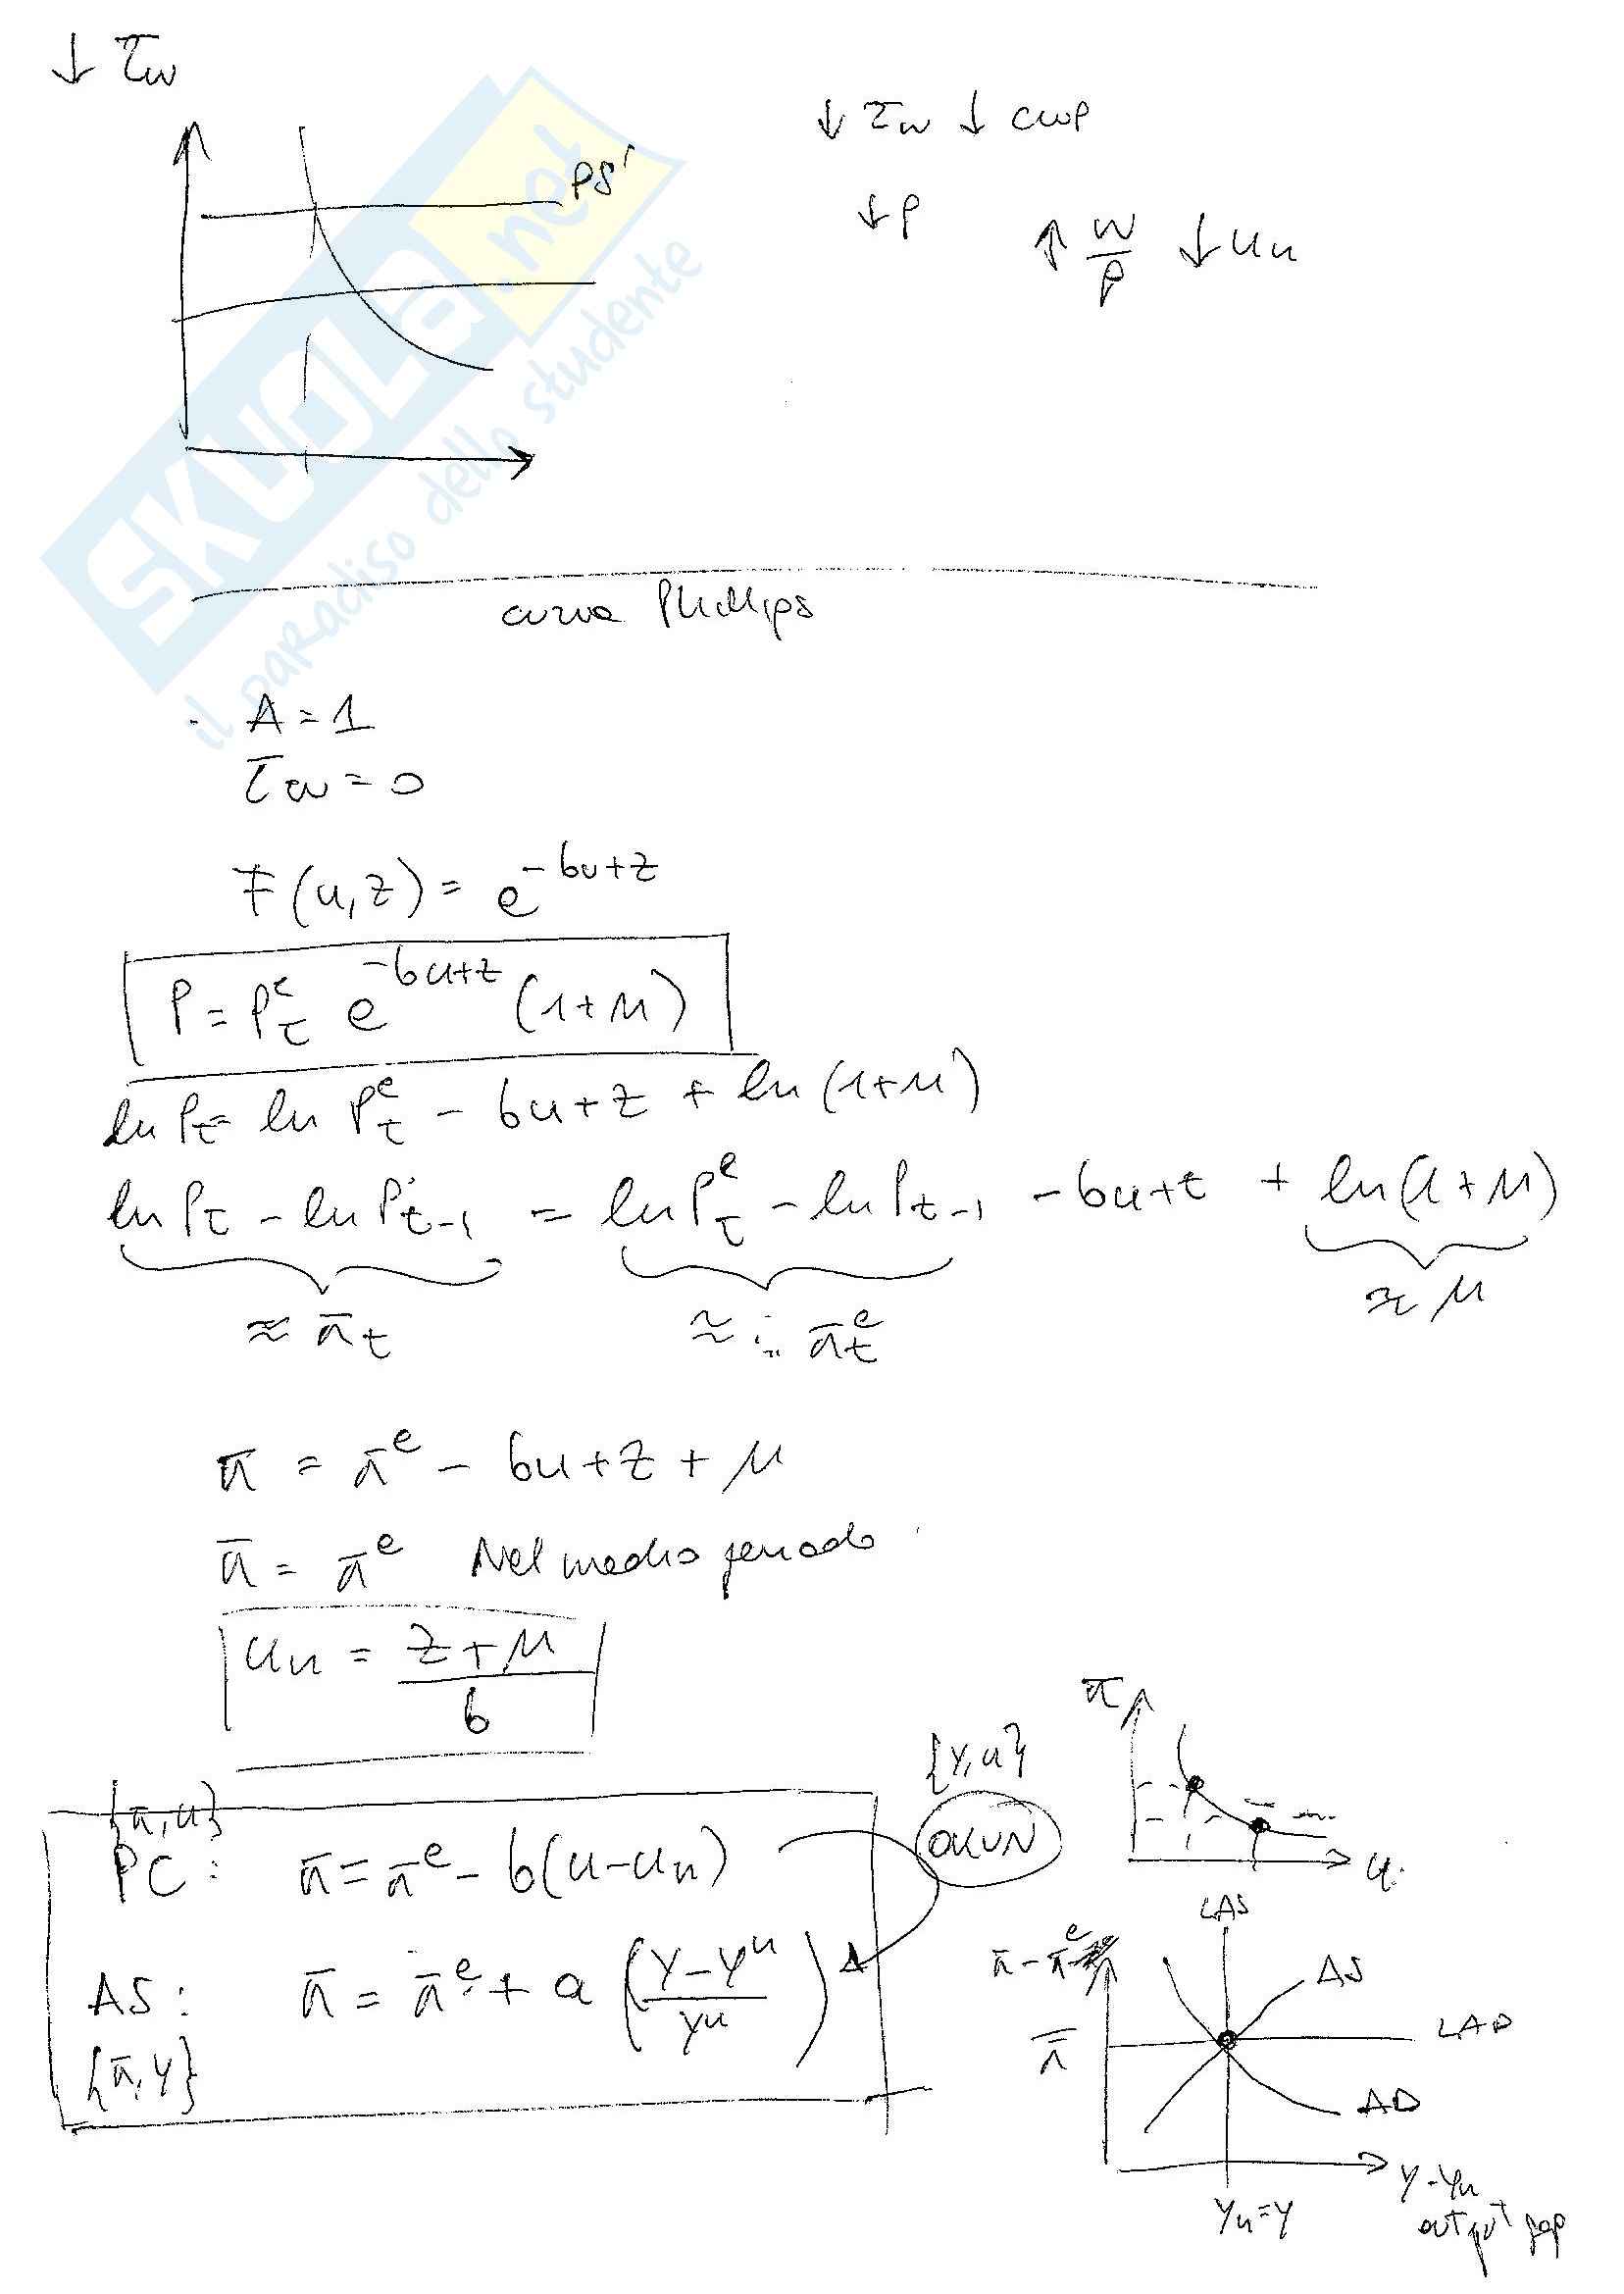 ↓ τw
↓ τw ↓ cup
PS'
↓ P
↑ W/P ↓ un
SKUOLA.net
il paradiso dello studente
curva Phillips
A = 1
τw = 0
F(u,z) = e^{-bu+z}
P = P^e_t e^{-bu+z} (1+μ)
ln Pt = ln P^e_t - bu+z + ln(1+μ)
ln Pt - ln Pt-1 = ln P^e_t - ln Pt-1 - bu+z + ln(1+μ)
≈ πt ≈ π^e_t ≈ μ
π = π^e - bu+z+μ
π = π^e Nel medio periodo
un = (z+μ)/b
π
{Y,u}
{π,u}
OKUN
PC: π = π^e - b(u-un)
u
LAS
π-π^e
AS
AS: π = π^e + a((Y-Yn)/Yn)
π
LAD
{π,Y}
AD
Y-Yn
Yn=Y
output gap